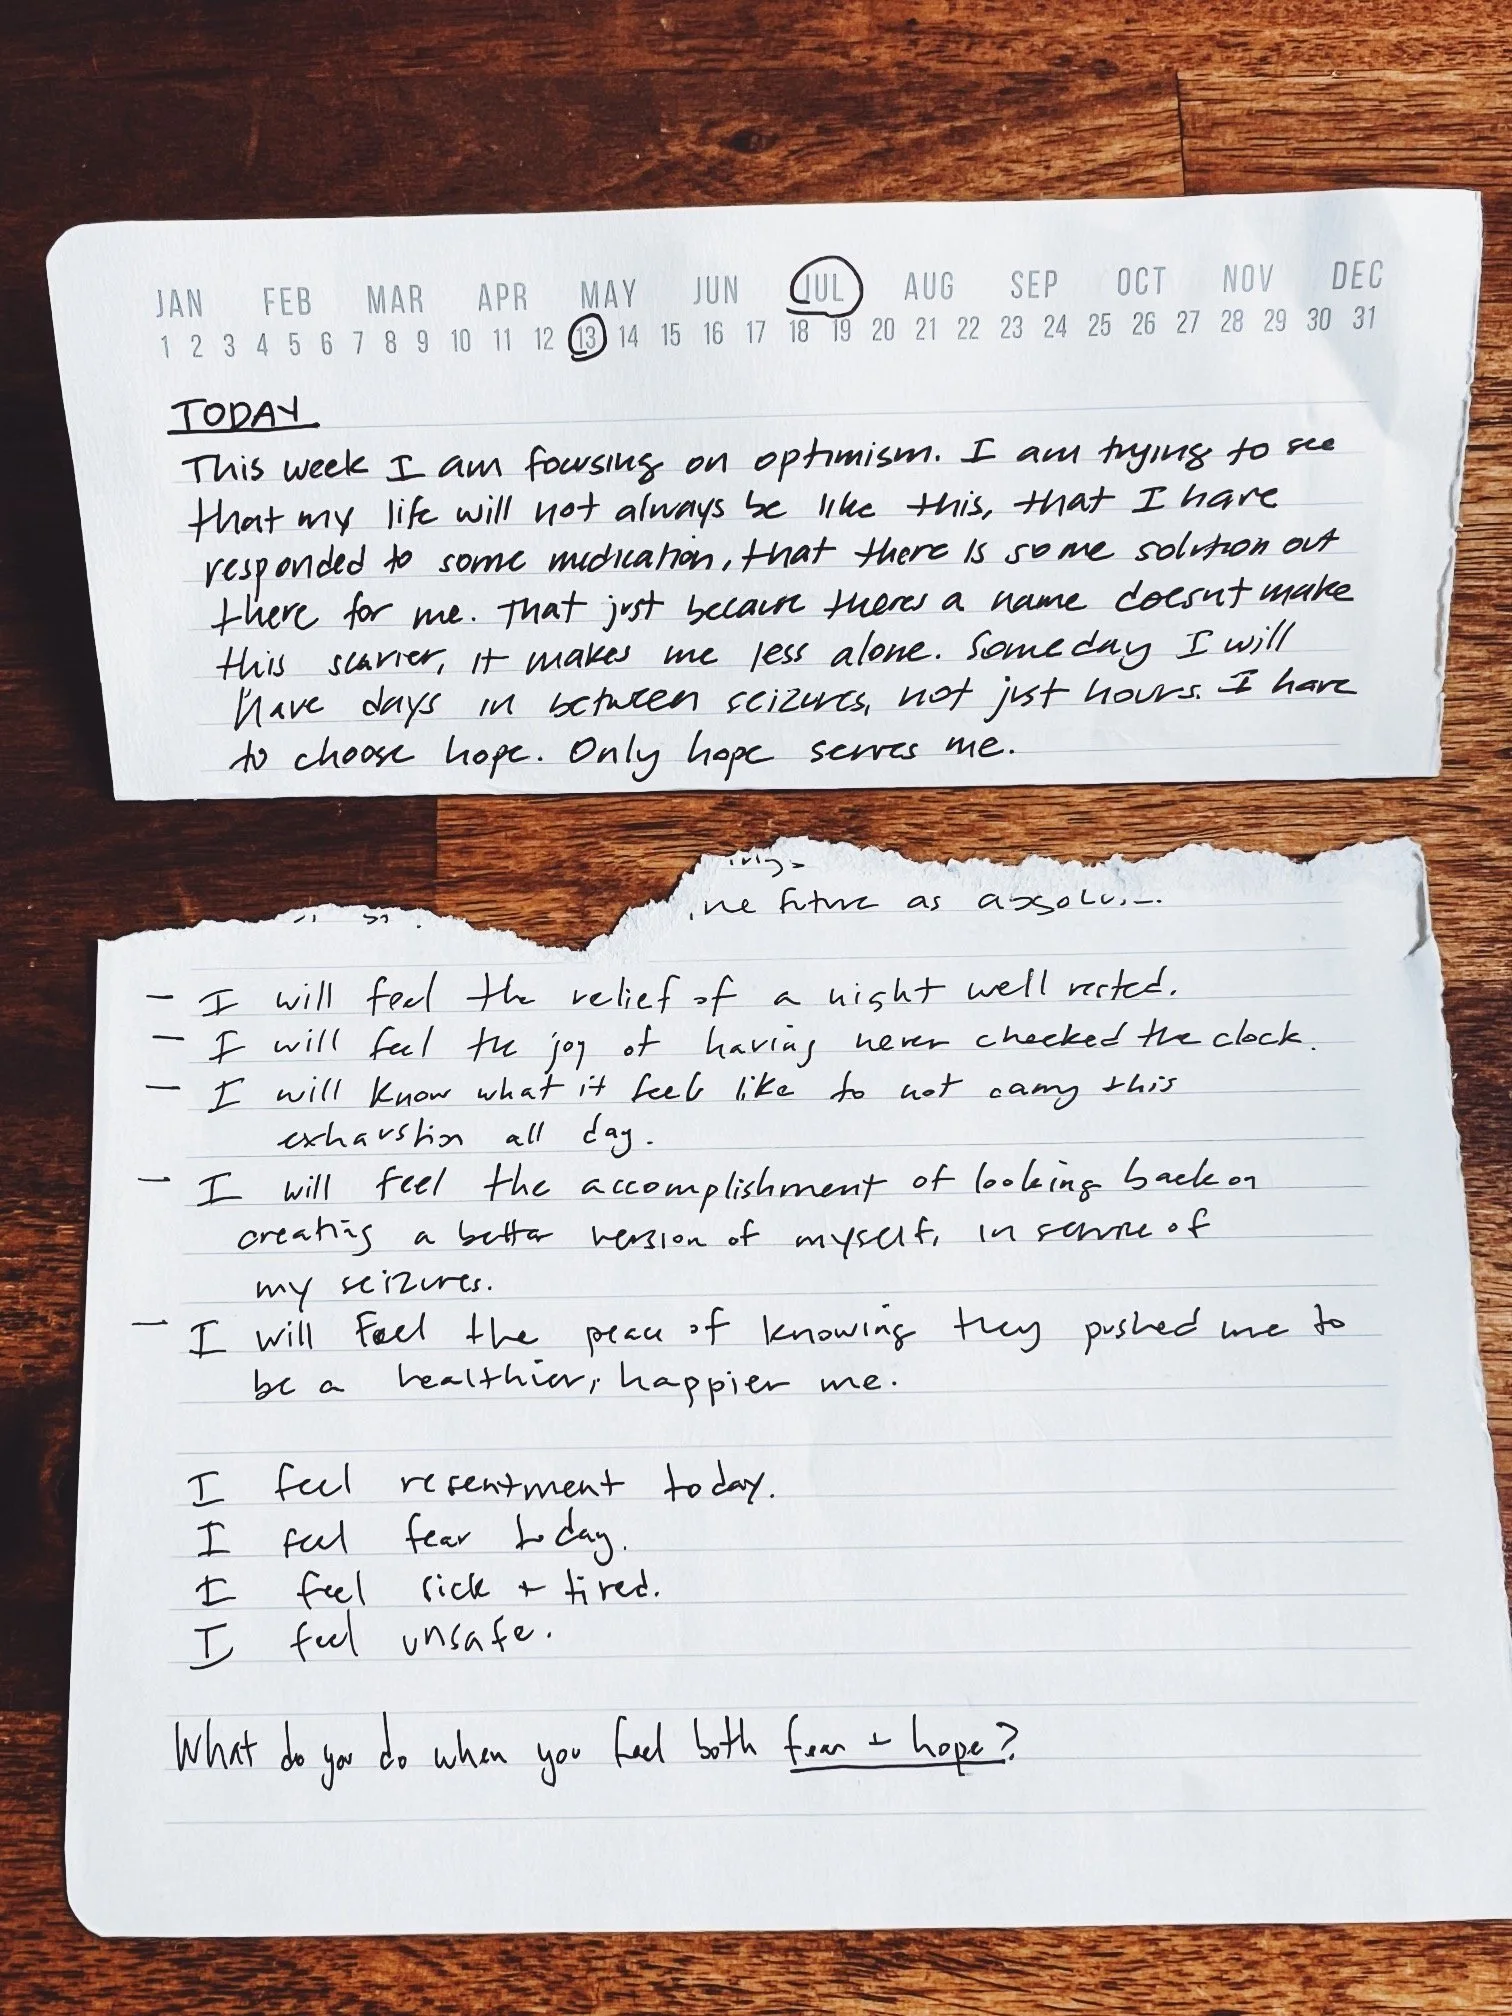 JAN FEB MAR APR MAY JUN JUL AUG SEP OCT NOV DEC
1 2 3 4 5 6 7 8 9 10 11 12 13 14 15 16 17 18 19 20 21 22 23 24 25 26 27 28 29 30 31
TODAY
This week I am focusing on optimism. I am trying to see
that my life will not always be like this, that I have
responded to some medication, that there is some solution out
there for me. That just because theres a name doesnt make
this scarier, it makes me less alone. Someday I will
have days in between seizures, not just hours. I have
to choose hope. Only hope serves me.
future as
- I will feel the relief of a night well rested.
- I will feel the joy of having never checked the clock.
- I will know what it feels like to not carry this
exhaustion all day.
- I will feel the accomplishment of looking back on
creating a better version of myself, in service of
my seizures.
- I will feel the peace of knowing they pushed me to
be a healthier, happier me.
I feel resentment today.
I feel fear today.
I feel sick + tired.
I feel unsafe.
What do you do when you feel both fear + hope?